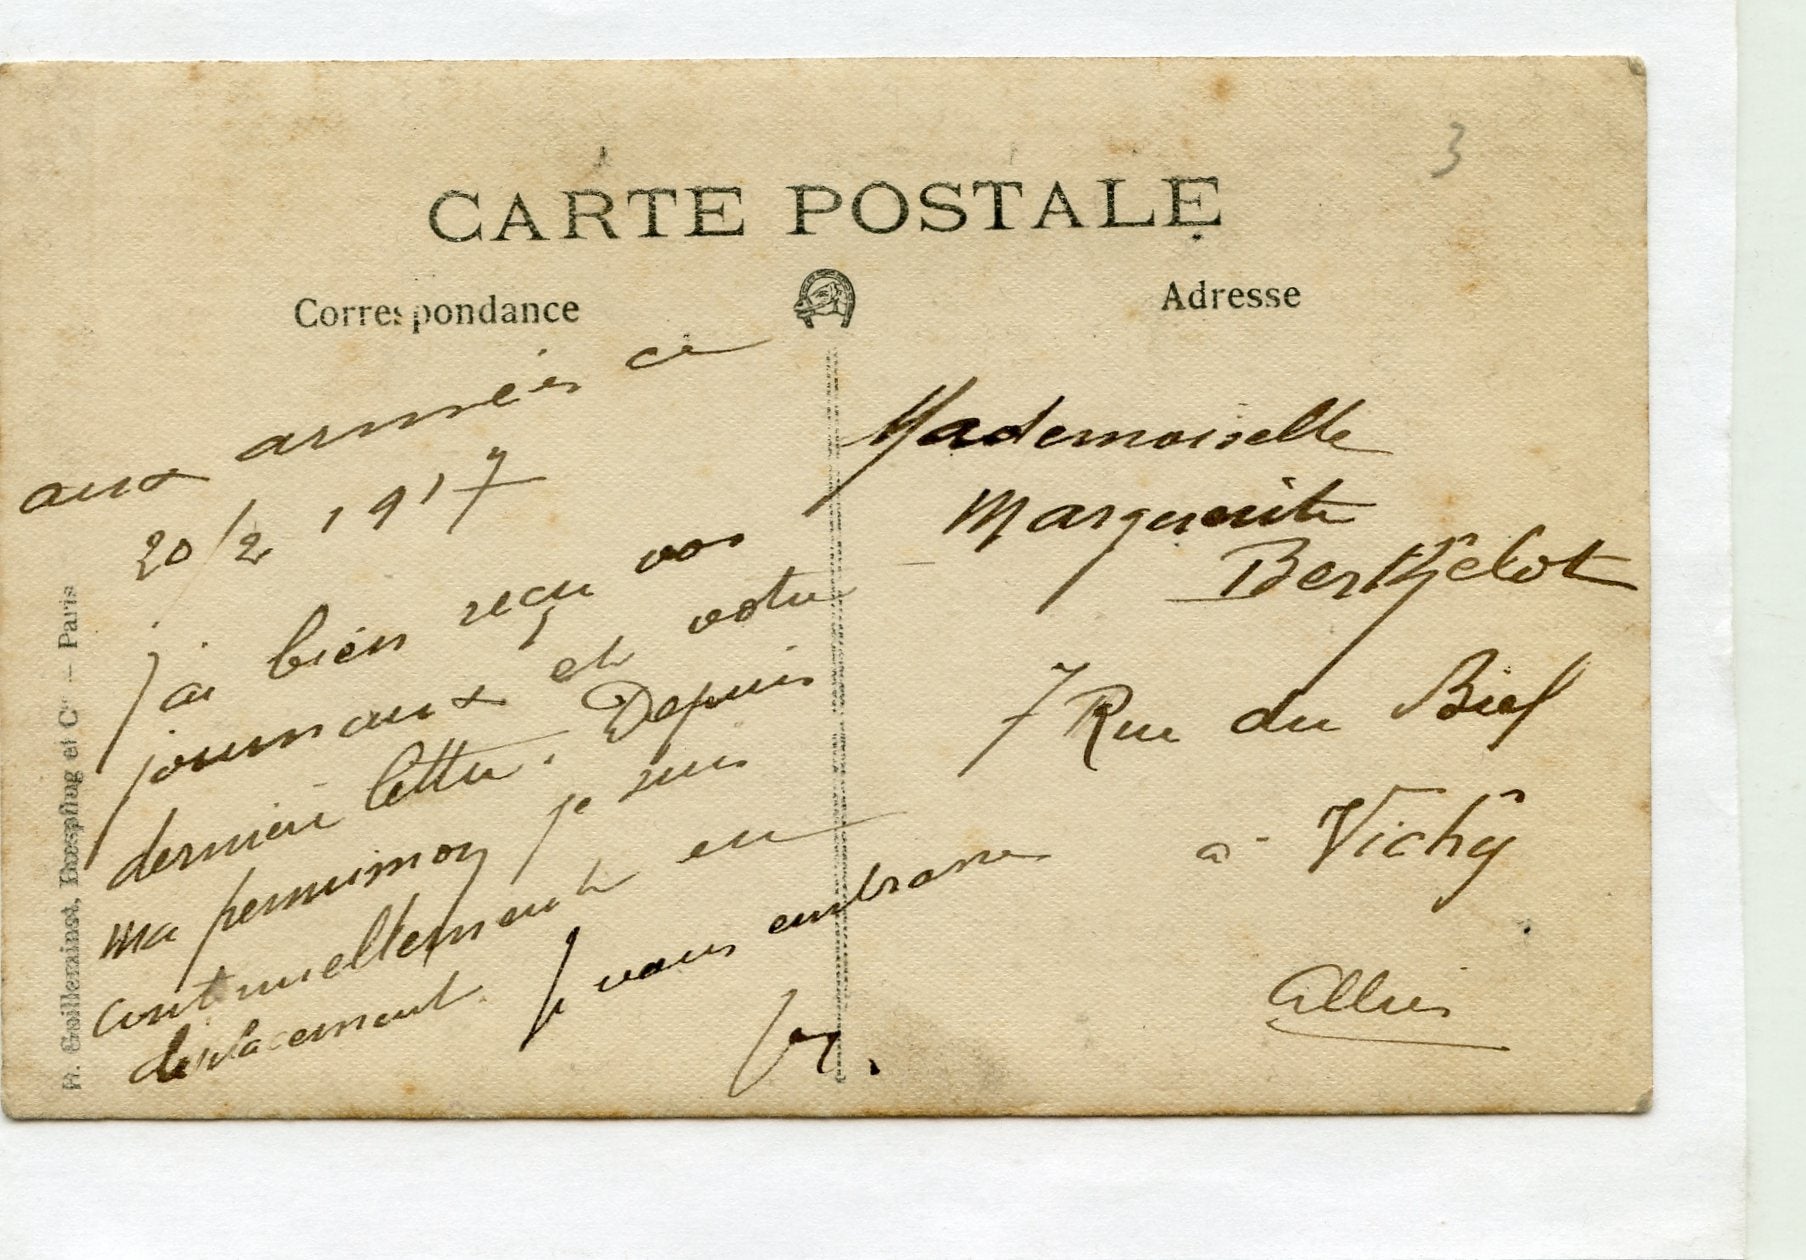 3
CARTE POSTALE
Correspondance
Adresse
aux armées ce
20/2 1917
j'ai bien reçu vos
journaux et votre
dernière lettre. Depuis
ma permission je suis
continuellement en
deplacement. Je vous embrasse
Mademoiselle
Marguerite
Berthelot
7 Rue du Bief
à Vichy
Allier
R. Guilleminot, Bœspflug et Cie — Paris